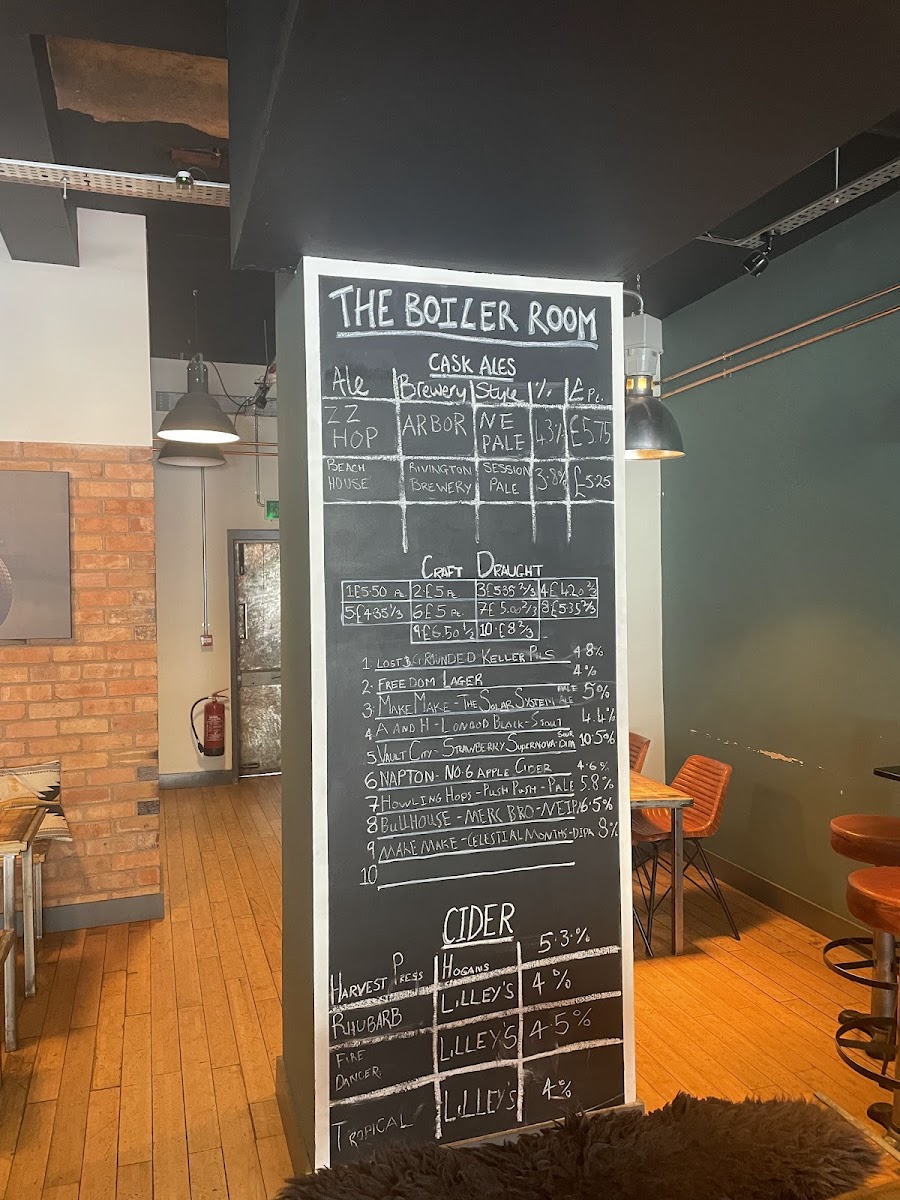 THE BOILER ROOM
CASK ALES
Ale Brewery Style % £ Pt.
ZZ HOP ARBOR NE PALE 4.3% £5.75
BEACH HOUSE RIVINGTON BREWERY SESSION PALE 3.8% £5.25
CRAFT DRAUGHT
1£5.50 Pt. 2·£5 Pt. 3£5.35 2/3 4£4.20 2/3
5·£4.35 1/3 6£5 Pt. 7£5.00 2/3 8£5.35 2/3
9£6.50 1/2 10·£8 2/3
1. LOST & GROUNDED KELLER PILS 4.8%
2. FREEDOM LAGER 4%
3. MAKE MAKE - THE SOLAR SYSTEM PALE ALE 5%
4 A AND H - LONDOD BLACK - STOUT 4.4%
5 VAULT CITY - STRAWBERRY SUPERNOVA - SOUR 10.5%
6 NAPTON - NO.6 APPLE CIDER 4.6%
7 HOWLING HOPS - PUSH PUSH - PALE 5.8%
8 BULLHOUSE - MERC BRO - NEIPA 6.5%
9 MAKE MAKE - CELESTIAL MONTHS - DIPA 8%
10
CIDER
HARVEST PRESS HOGANS 5.3.%
RHUBARB LILLEY'S 4%
FIRE DANCER. LILLEY'S 4.5%
TROPICAL LILLEY'S 4%